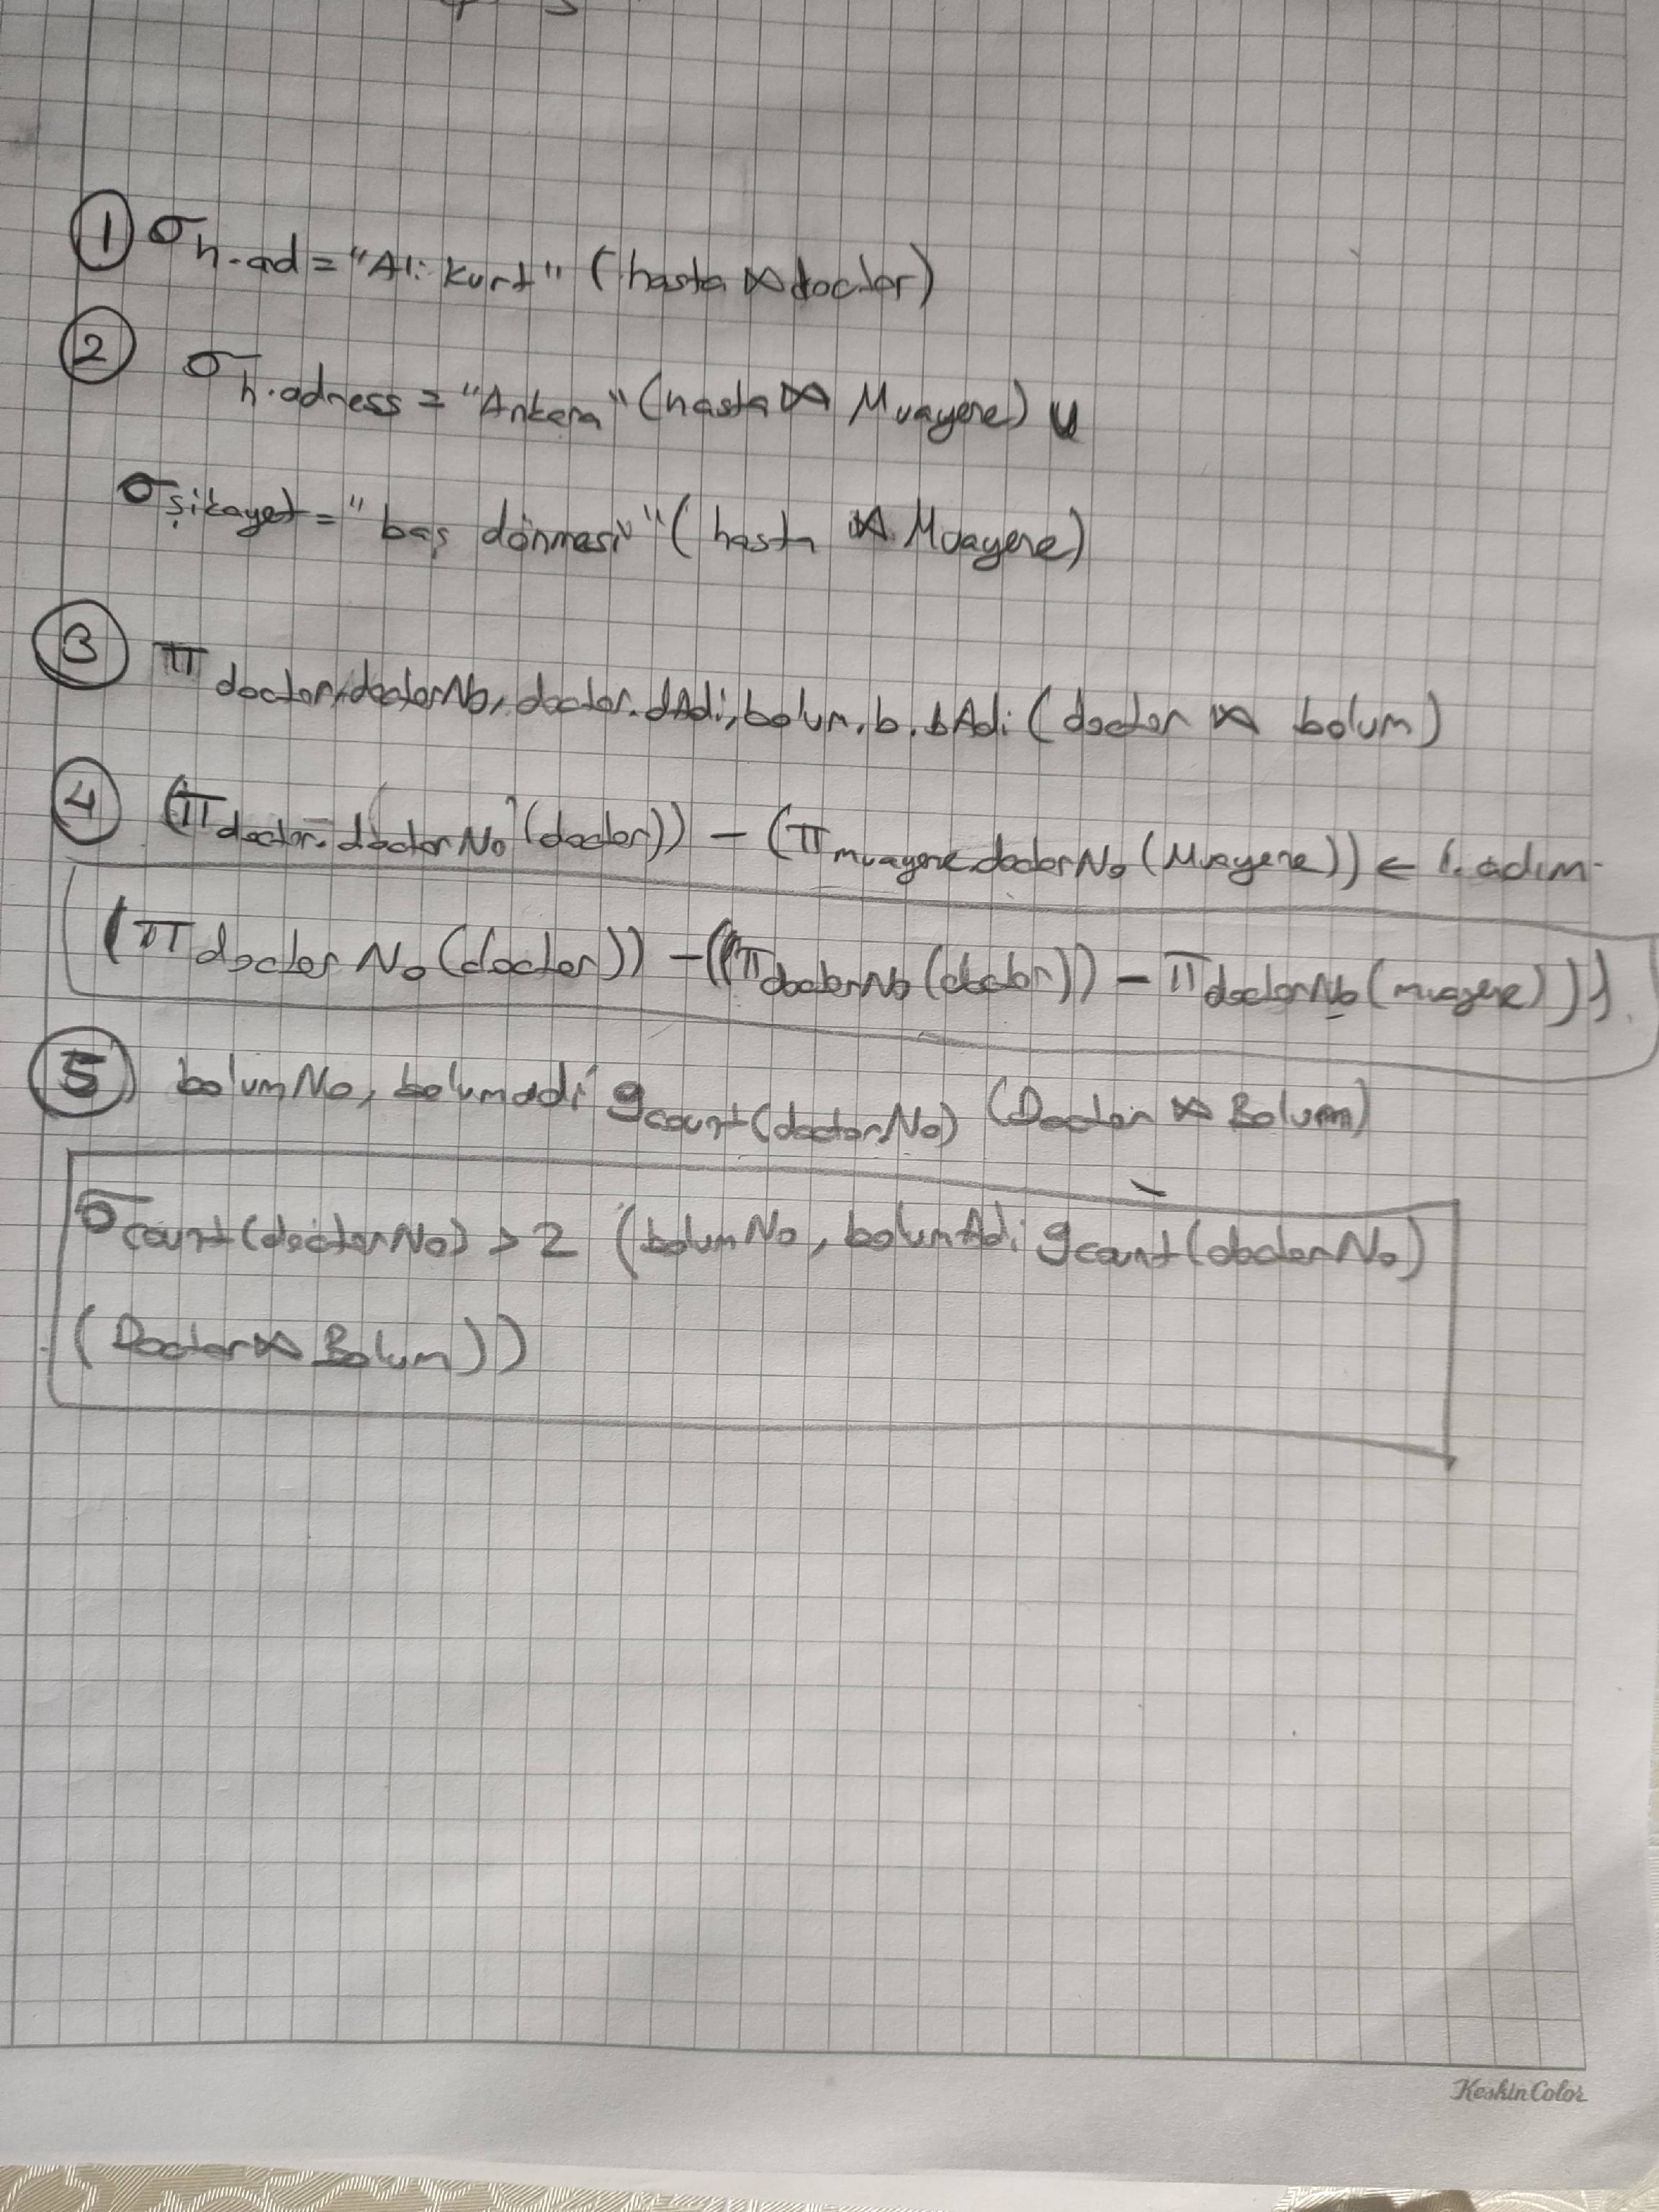 ① σ h.ad = "Ali Kurt" (hasta ⋈ doctor)
② σ h.adress = "Ankara" (hasta ⋈ Muayene) ∪
σ şikayet = "baş dönmesi" (hasta ⋈ Muayene)
③ π doctor.doctorNo, doctor.dAdi, bolum.b.bAdi (doctor ⋈ bolum)
④ (π doctor.doctorNo (doctor)) - (π muayene.doctorNo (Muayene)) ← 1. adım
(π doctorNo (doctor)) - ((π doctorNo (doctor)) - π doctorNo (muayene)))
⑤ bolumNo, bolumadi g count(doctorNo) (Doctor ⋈ Bolum)
σ count(doctorNo) > 2 (bolumNo, bolumAdi g count(doctorNo)
(Doctor ⋈ Bolum))
KeskinColor